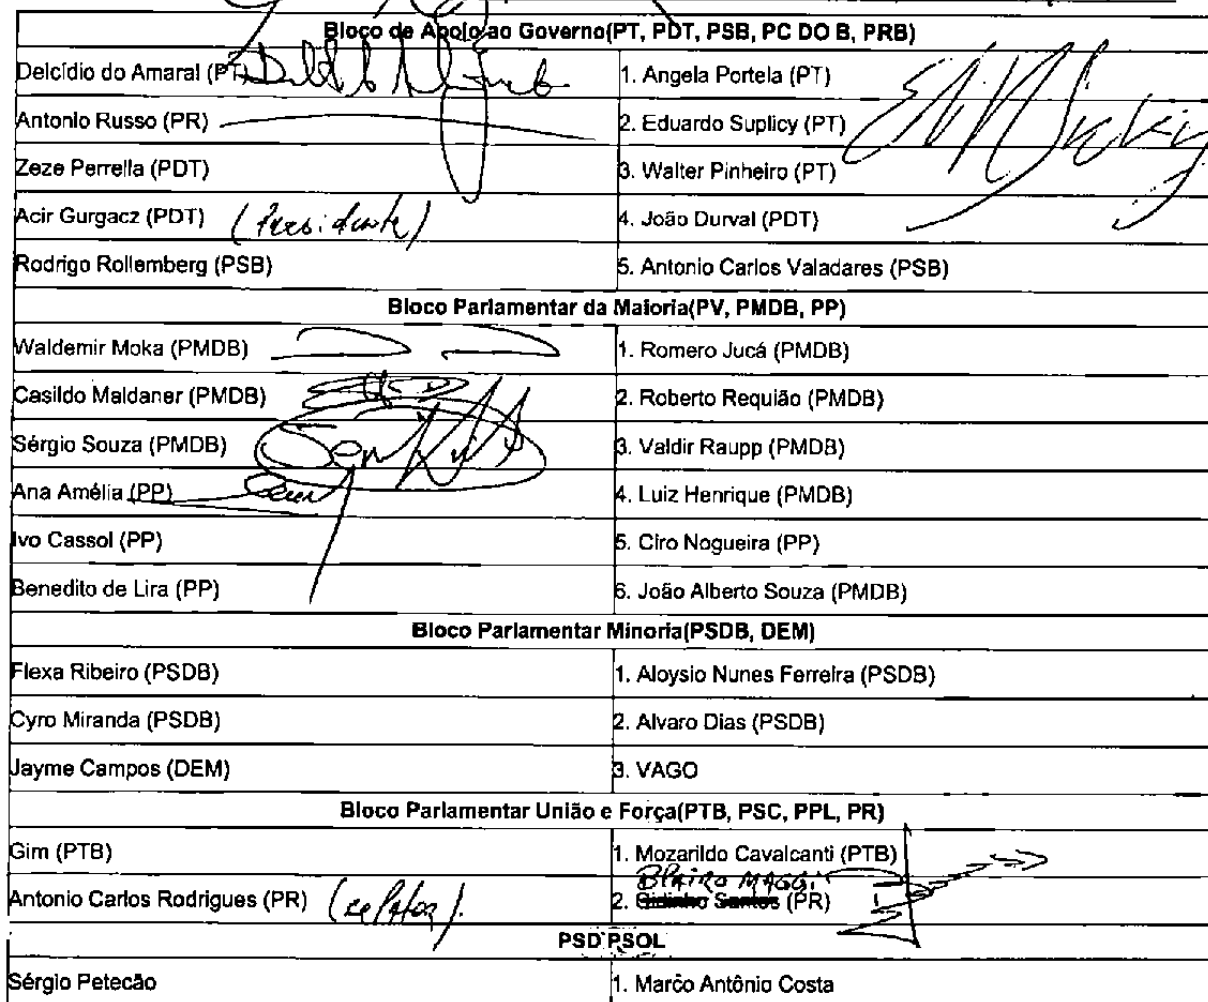 Bloco de Apoio ao Governo(PT, PDT, PSB, PC DO B, PRB)
Delcídio do Amaral (PT)
1. Angela Portela (PT)
Antonio Russo (PR)
2. Eduardo Suplicy (PT)
Zeze Perrella (PDT)
3. Walter Pinheiro (PT)
Acir Gurgacz (PDT) (Presidente)
4. João Durval (PDT)
Rodrigo Rollemberg (PSB)
5. Antonio Carlos Valadares (PSB)
Bloco Parlamentar da Maioria(PV, PMDB, PP)
Waldemir Moka (PMDB)
1. Romero Jucá (PMDB)
Casildo Maldaner (PMDB)
2. Roberto Requião (PMDB)
Sérgio Souza (PMDB)
3. Valdir Raupp (PMDB)
Ana Amélia (PP)
4. Luiz Henrique (PMDB)
Ivo Cassol (PP)
5. Ciro Nogueira (PP)
Benedito de Lira (PP)
6. João Alberto Souza (PMDB)
Bloco Parlamentar Minoria(PSDB, DEM)
Flexa Ribeiro (PSDB)
1. Aloysio Nunes Ferreira (PSDB)
Cyro Miranda (PSDB)
2. Alvaro Dias (PSDB)
Jayme Campos (DEM)
3. VAGO
Bloco Parlamentar União e Força(PTB, PSC, PPL, PR)
Gim (PTB)
1. Mozarildo Cavalcanti (PTB)
BLAIRO MAGGI
Antonio Carlos Rodrigues (PR) (relator).
2. Cidinho Santos (PR)
PSD PSOL
Sérgio Petecão
1. Marco Antônio Costa